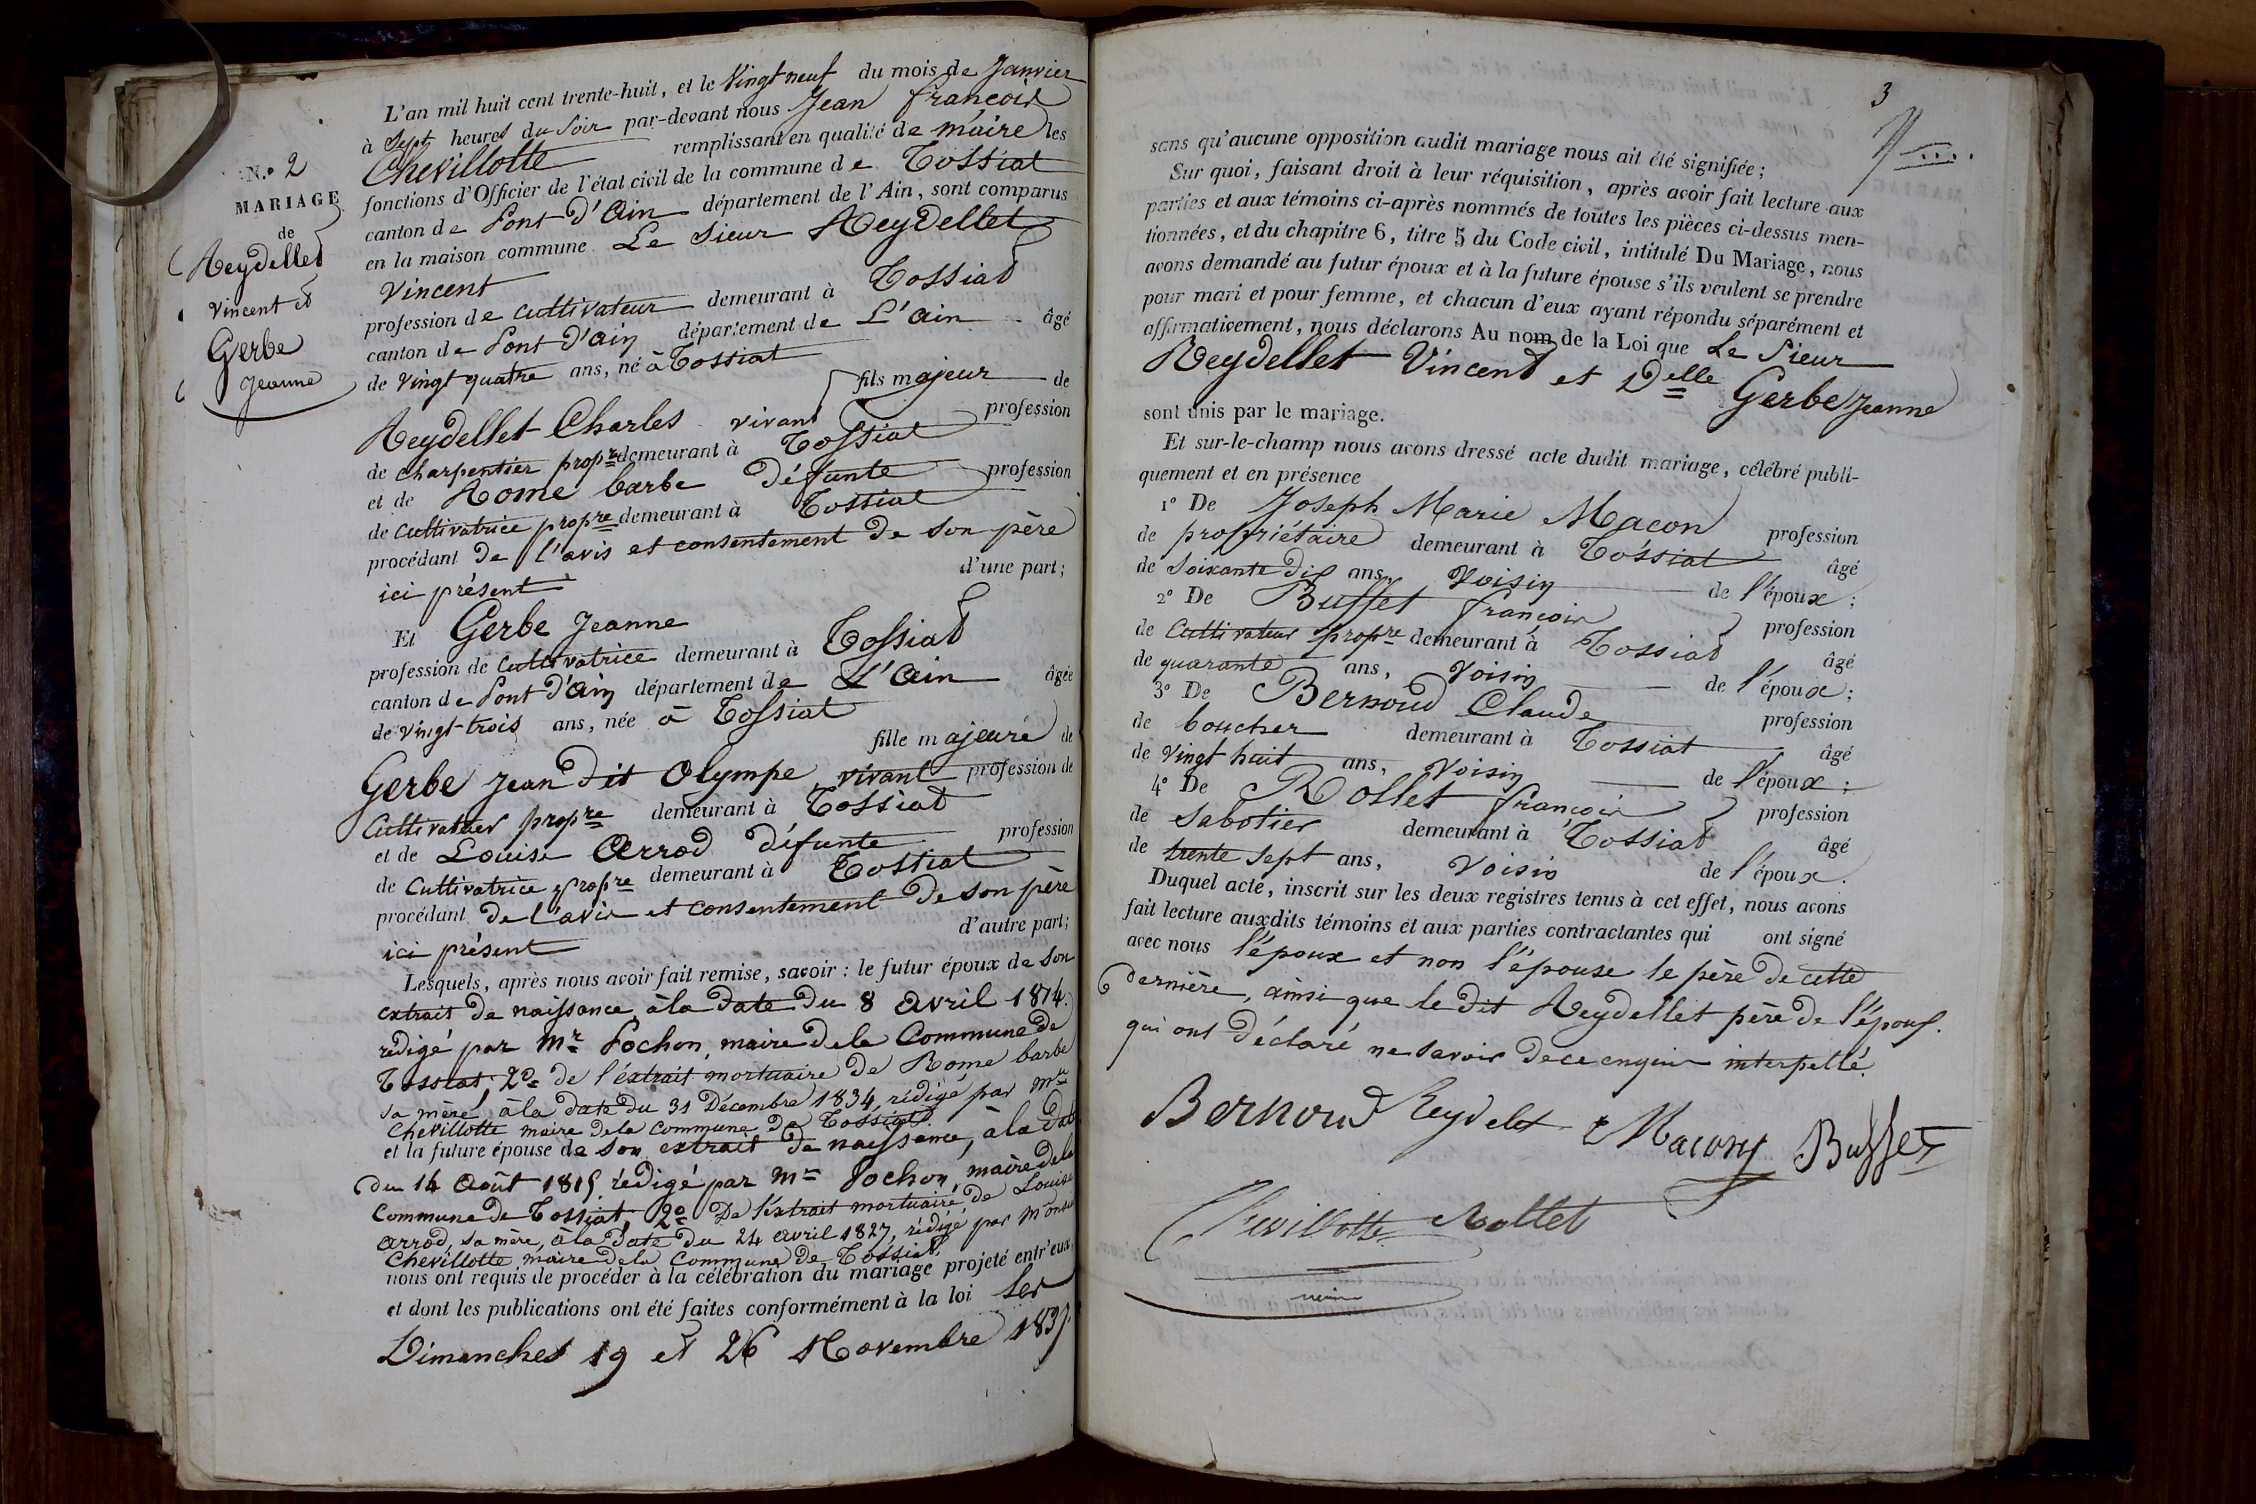 N.º 2
MARIAGE
de
Reydellet
Vincent et
Gerbe
Jeanne
L'an mil huit cent trente-huit, et le Vingt neuf du mois de Janvier
à Sept heures du Soir par-devant nous Jean françois
Chevillotte remplissant en qualité de maire les
fonctions d'Officier de l'état civil de la commune de Tossiat
canton de Pont d'Ain département de l'Ain, sont comparus
en la maison commune Le Sieur Reydellet
Vincent
profession de cultivateur demeurant à Tossiat
canton de Pont d'ain département de L'ain âgé
de Vingt quatre ans, né à Tossiat
fils majeur de
Reydellet Charles vivant profession
de charpentier propre demeurant à Tossiat
et de Rome barbe Défunte profession
de cultivatrice propre demeurant à Tossiat
procédant de l'avis et consentement de son père
ici présent d'une part;
Et Gerbe Jeanne
profession de cultivatrice demeurant à Tossiat
canton de Pont d'Ain département de L'Ain âgée
de Vingt-trois ans, née à Tossiat
fille majeure de
Gerbe Jean Dit Olympe vivant profession de
Cultivateur propre demeurant à Tossiat
et de Louise Arrod Défunte profession
de Cultivatrice propre demeurant à Tossiat
procédant de l'avis et consentement de son père
ici présent d'autre part;
Lesquels, après nous avoir fait remise, savoir : le futur époux de son
extrait de naissance, à la Date Du 8 avril 1814.
rédigé par Mr Pochon, maire de la Commune de
Tossiat, 2º de l'extrait mortuaire de Rome barbe
sa mère, à la date du 31 Décembre 1834, rédigé par Mr
Chevillotte maire de la Commune de Tossiat.
et la future épouse de son extrait de naissance, à la Date
du 14 Août 1815 rédigé par Mr Pochon, maire de la
Commune de Tossiat, 2º De l'extrait mortuaire de Louise
Arrod, sa mère, à la Date Du 24 avril 1827, rédigé par Monsr
Chevillotte, maire de la Commune De Tossiat,
nous ont requis de procéder à la célébration du mariage projeté entr'eux,
et dont les publications ont été faites conformément à la loi Les
Dimanches 19 et 26 Novembre 1837
3
sans qu'aucune opposition audit mariage nous ait été signifiée;
Sur quoi, faisant droit à leur réquisition, après avoir fait lecture aux
parties et aux témoins ci-après nommés de toutes les pièces ci-dessus men-
tionnées, et du chapitre 6, titre 5 du Code civil, intitulé Du Mariage, nous
avons demandé au futur époux et à la future épouse s'ils veulent se prendre
pour mari et pour femme, et chacun d'eux ayant répondu séparément et
affirmativement, nous déclarons Au nom de la Loi que Le Sieur
Reydellet Vincent et Delle Gerbe Jeanne
sont unis par le mariage.
Et sur-le-champ nous avons dressé acte dudit mariage, célébré publi-
quement et en présence
1º De Joseph Marie Macon profession
de propriétaire demeurant à Tossiat âgé
de Soixante dix ans, Voisin de l'époux;
2º De Buffet françois profession
de Cultivateur propre demeurant à Tossiat âgé
de quarante ans, Voisin de l'époux;
3º De Bernoud Claude profession
de boucher demeurant à Tossiat âgé
de Vingt huit ans, Voisin de l'époux;
4º De Rollet françois profession
de Sabotier demeurant à Tossiat âgé
de trente sept ans, Voisin de l'époux.
Duquel acte, inscrit sur les deux registres tenus à cet effet, nous avons
fait lecture auxdits témoins et aux parties contractantes qui ont signé
avec nous l'époux et non l'épouse le père de cette
dernière, ainsi que le dit Reydellet père de l'époux.
qui ont déclaré ne savoir de ce enquis interpellé.
Bernoud Reydelet Macon Buffet
Chevillotte Rollet